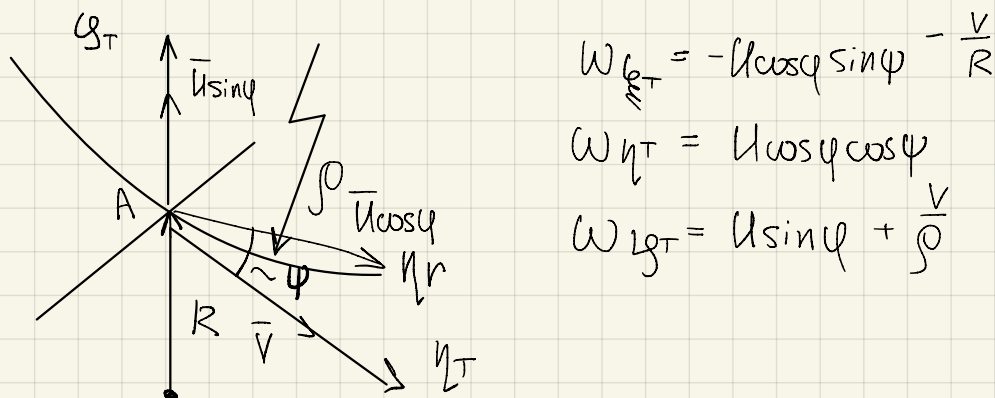 ζT
ū sinφ
A
ρ
ū cosφ
ηr
~ψ
R
V̄
ηT
ωξT = -U cosφ sinψ - V/R
ωηT = U cosφ cosψ
ωζT = U sinφ + V/ρ